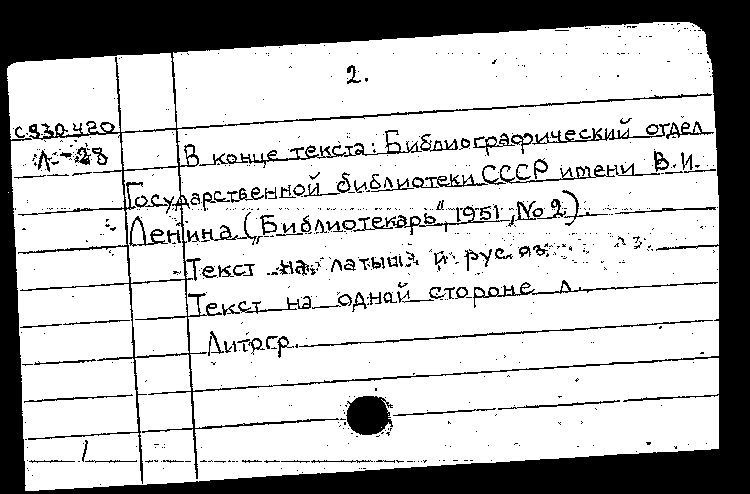 2.
С930.420
Л-28
В конце текста: Библиографический отдел
Государственной библиотеки СССР имени В.И.
Ленина („Библиотекарь“, 1951, №2).
Текст на латыш. и рус. яз.
Текст на одной стороне л.
Литогр.